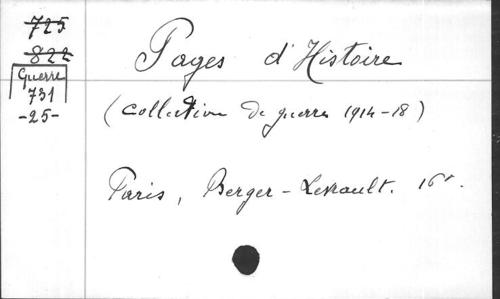 725
822
Guerre
731
-25-
Pages d'Histoire
(Collection de guerre 1914-18)
Paris, Berger-Levrault. 16°.